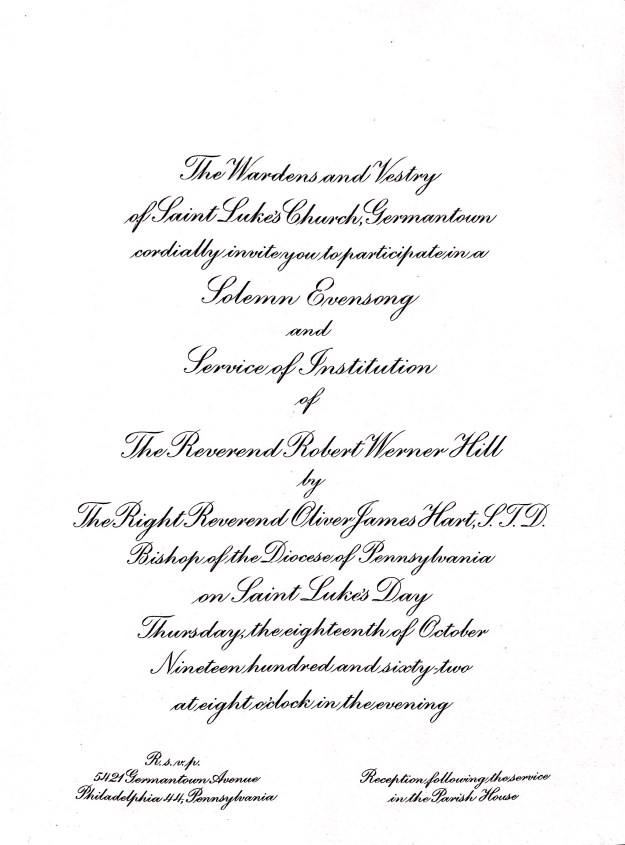 The Wardens and Vestry
of Saint Luke's Church, Germantown
cordially invite you to participate in a
Solemn Evensong
and
Service of Institution
of
The Reverend Robert Werner Hill
by
The Right Reverend Oliver James Hart, S.T.D.
Bishop of the Diocese of Pennsylvania
on Saint Luke's Day
Thursday, the eighteenth of October
Nineteen hundred and sixty-two
at eight o'clock in the evening
R.s.v.p.
5421 Germantown Avenue
Philadelphia 44, Pennsylvania
Reception following the service
in the Parish House